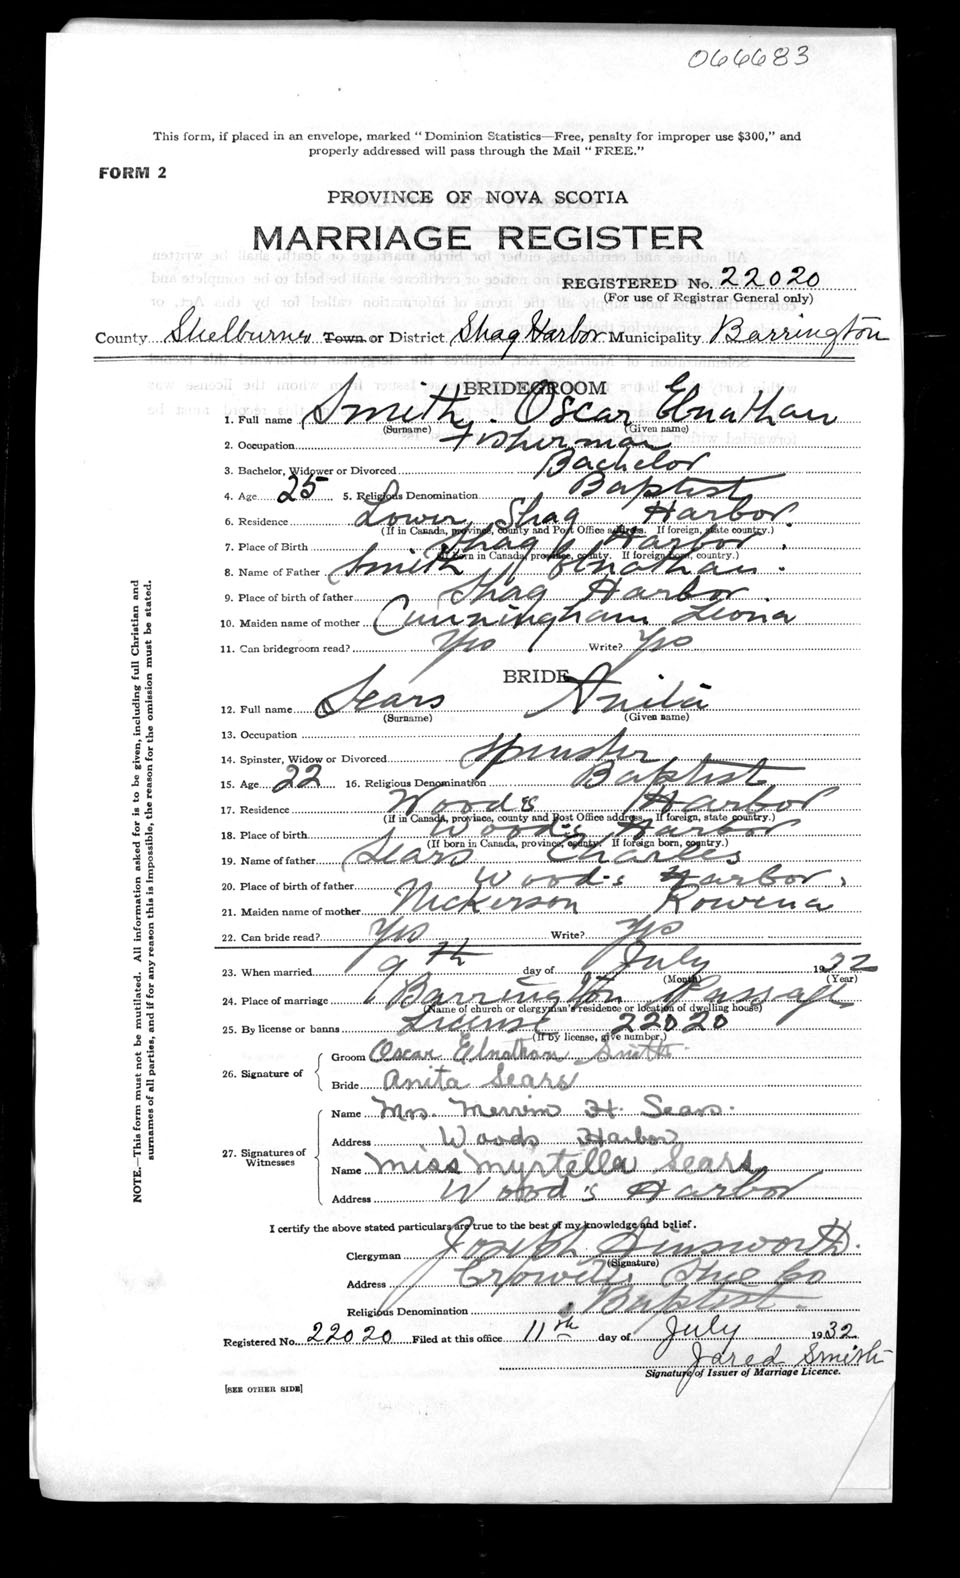 066683
This form, if placed in an envelope, marked "Dominion Statistics—Free, penalty for improper use $300," and
properly addressed will pass through the Mail "FREE."
FORM 2
PROVINCE OF NOVA SCOTIA
MARRIAGE REGISTER
REGISTERED No. 22020
(For use of Registrar General only)
County Shelburne Town or District Shag Harbor Municipality Barrington
BRIDEGROOM
1. Full name Smith Oscar Elnathan
(Surname) (Given name)
2. Occupation Fisherman
3. Bachelor, Widower or Divorced Bachelor
4. Age 25 5. Religious Denomination Baptist
6. Residence Lower Shag Harbor
(If in Canada, province, county and Post Office address. If foreign, state country.)
7. Place of Birth Shag Harbor
(If born in Canada, province, county. If foreign born, country.)
8. Name of Father Smith Elnathan
9. Place of birth of father Shag Harbor
10. Maiden name of mother Cunningham Leona
11. Can bridegroom read? Yes Write? Yes
BRIDE
12. Full name Sears Anita
(Surname) (Given name)
13. Occupation
14. Spinster, Widow or Divorced Spinster
15. Age 22 16. Religious Denomination Baptist
17. Residence Wood's Harbor
(If in Canada, province, county and Post Office address. If foreign, state country.)
18. Place of birth Wood's Harbor
(If born in Canada, province, county. If foreign born, country.)
19. Name of father Sears Charles
20. Place of birth of father Wood's Harbor
21. Maiden name of mother Nickerson Rowena
22. Can bride read? Yes Write? Yes
23. When married 9th day of July 1932
(Month) (Year)
24. Place of marriage Barrington Passage
(Name of church or clergyman's residence or location of dwelling house)
25. By license or banns License 22020
(If by license, give number.)
26. Signature of Groom Oscar Elnathan Smith
Bride Anita Sears
27. Signatures of Witnesses Name Mrs. H. Sears
Address Woods Harbor
Name Miss Myrtella Sears
Address Wood's Harbor
I certify the above stated particulars are true to the best of my knowledge and belief.
Clergyman Joseph Ainsworth
(Signature)
Address Shel Co
Religious Denomination Baptist
Registered No. 22020 Filed at this office 11th day of July 1932
Jared Smith
Signature of Issuer of Marriage Licence.
[SEE OTHER SIDE]
NOTE.—This form must not be mutilated. All information asked for is to be given, including full Christian and
surnames of all parties, and if for any reason this is impossible, the reason for the omission must be stated.